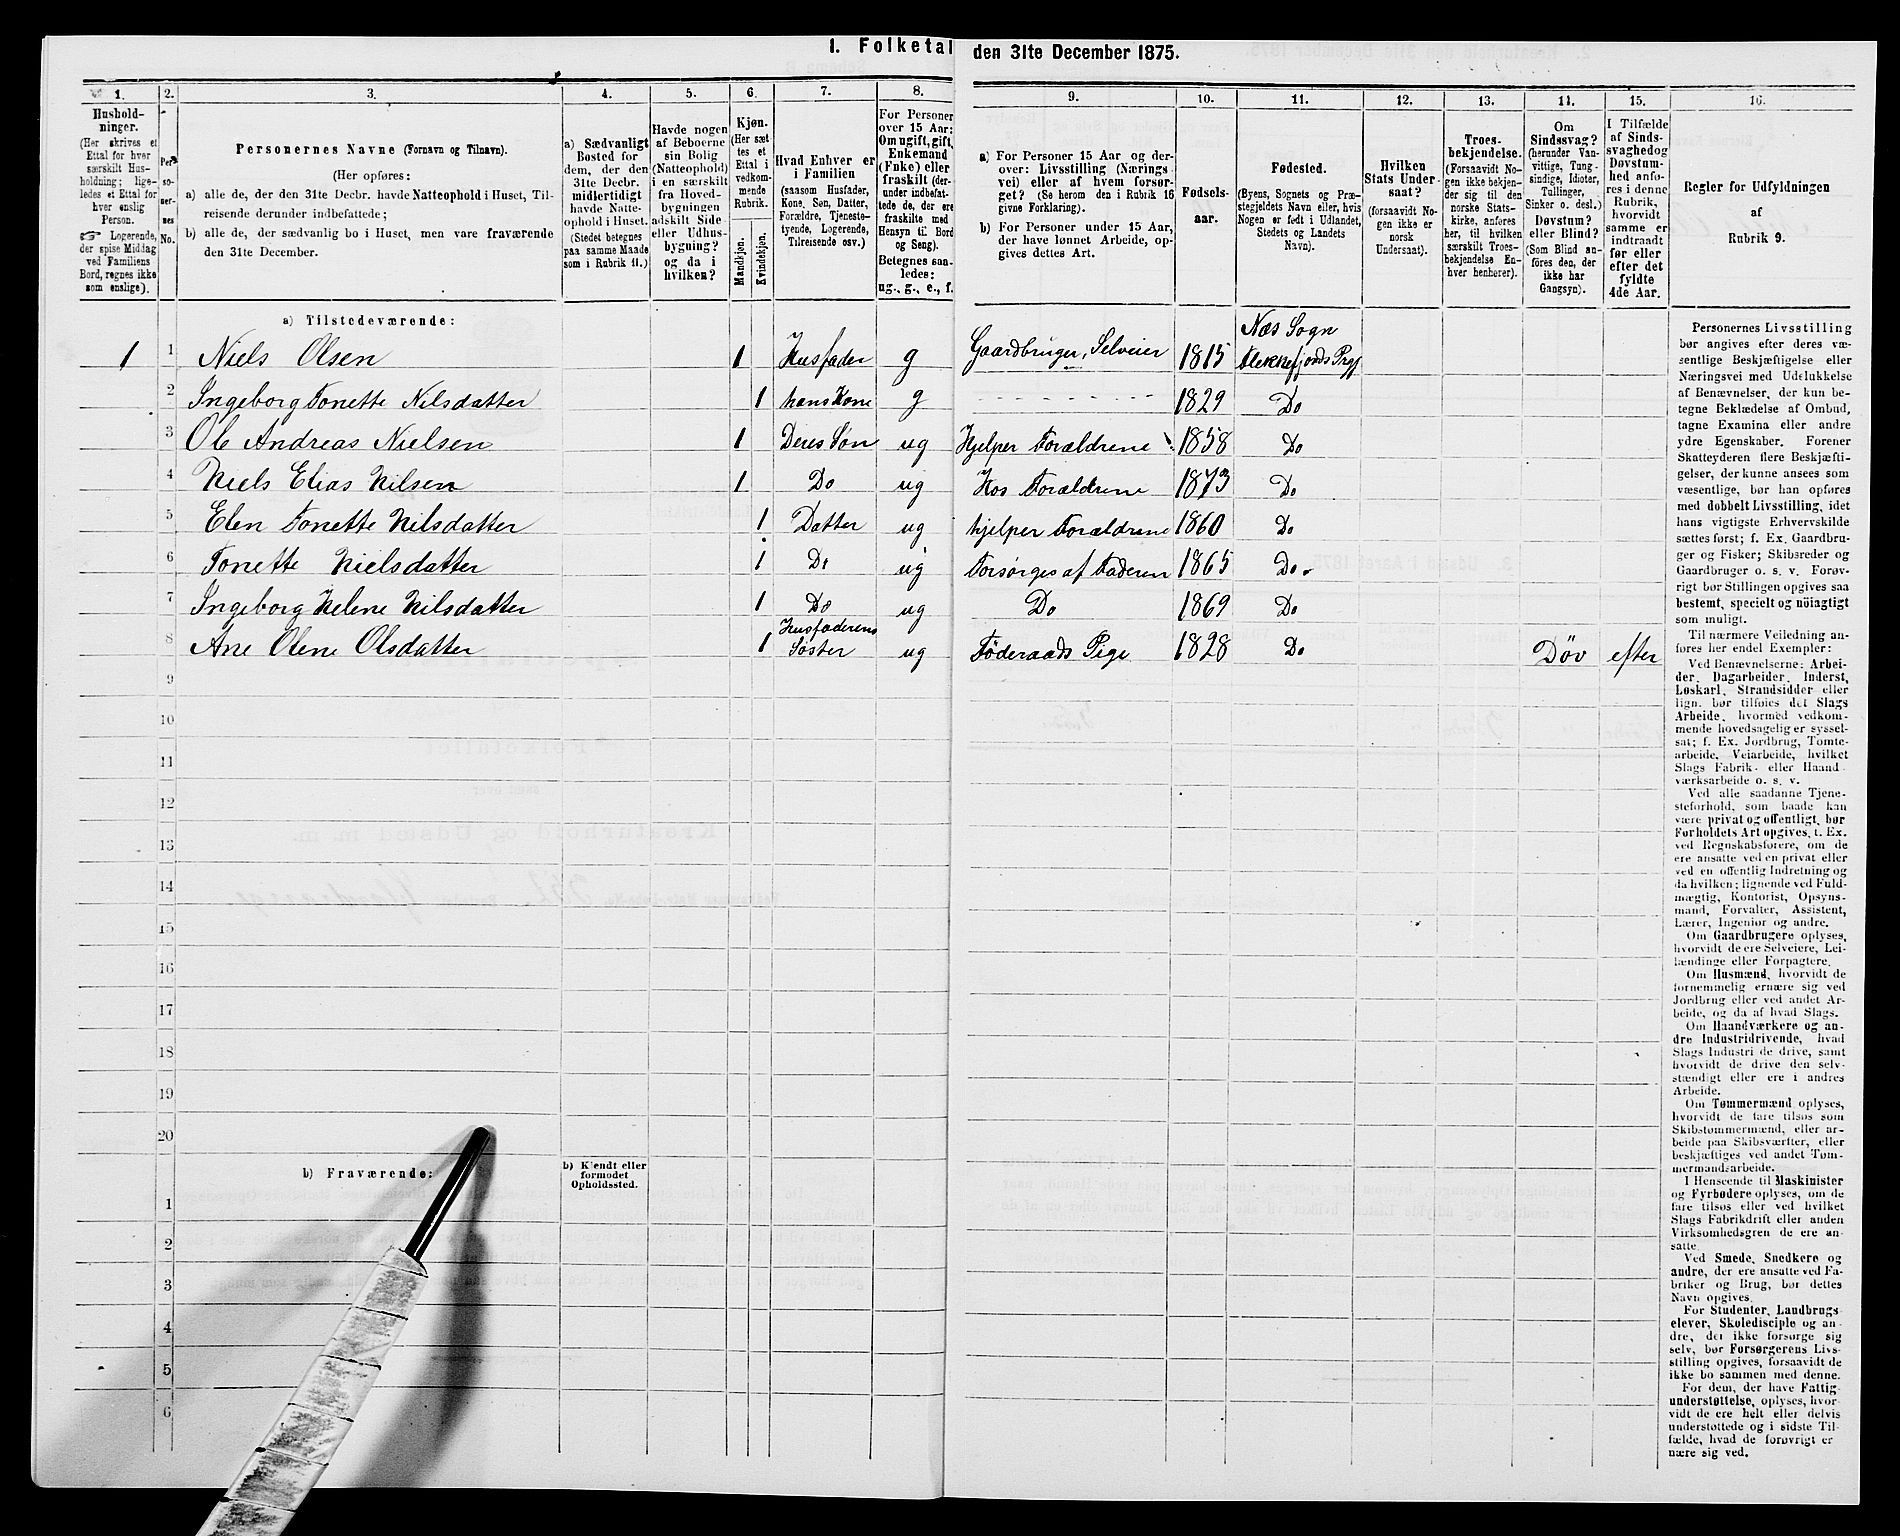 1. Folketal den 31te December 1875.
1. 2. 3. 4. 5. 6. 7. 8. 9. 10. 11. 12. 13. 14. 15. 16.
Hushold-
ninger.
(Her skrives et
Ettal for hver
særskilt Hus-
holdning; lige-
ledes et Ettal for
hver enslig
Person.
Logerende,
der spise Middag
ved Familiens
Bord, regnes ikke
som enslige).
Per-
so-
ner-
nes
No.
Personernes Navne (Fornavn og Tilnavn).
(Her opføres:
a) alle de, der den 31te Decbr. havde Natteophold i Huset, Til-
reisende derunder indbefattede;
b) alle de, der sædvanlig bo i Huset, men vare fraværende
den 31te December.
a) Sædvanligt
Bosted for
dem, der den
31te Decbr.
midlertidigt
havde Natte-
ophold i Huset.
(Stedet betegnes
paa samme Maade
som i Rubrik 11.)
Havde nogen
af Beboerne
sin Bolig
(Natteophold)
i en særskilt
fra Hoved-
bygningen
adskilt Side-
eller Udhus-
bygning?
og da i
hvilken?
Kjøn.
(Her sæt-
tes et
Ettal i
vedkom-
mende
Rubrik.
Mandkjøn.
Kvindekjøn.
Hvad Enhver er
i Familien
(saasom Husfader,
Kone, Søn, Datter,
Forældre, Tjeneste-
tyende, Logerende,
Tilreisende osv.)
For Personer
over 15 Aar:
Om ugift, gift,
Enkemand
(Enke) eller
fraskilt (der-
under indbefat-
tede de, der ere
fraskilte med
Hensyn til Bord
og Seng).
Betegnes saa-
ledes:
ug., g., e., f.
a) For Personer 15 Aar og der-
over: Livsstilling (Nærings-
vei) eller af hvem forsør-
get? (Se herom den i Rubrik 16
givne Forklaring).
b) For Personer under 15 Aar,
der have lønnet Arbeide, op-
gives dettes Art.
Fødsels-
aar.
Fødested.
(Byens, Sognets og Præ-
stegjeldets Navn eller, hvis
Nogen er født i Udlandet,
Stedets og Landets
Navn).
Hvilken
Stats Under-
saat?
(forsaavidt No-
gen ikke er
norsk
Undersaat).
Troes-
bekjendelse.
(Forsaavidt No-
gen ikke bekjen-
der sig til den
norske Stats-
kirke, anføres
her, til hvilken
særskilt Troes-
bekjendelse En-
hver henhører).
Om
Sindssvag?
(herunder Van-
vittige, Tung-
sindige, Idioter,
Tullinger,
Sinker o. desl.)
Døvstum?
eller Blind?
(Som Blind an-
føres den, der
ikke har
Gangsyn).
I Tilfælde
af Sinds-
svaghed og
Døvstum-
hed anfø-
res i denne
Rubrik,
hvorvidt
samme er
indtraadt
før eller
efter det
fyldte
4de Aar.
Regler for Udfyldningen
af
Rubrik 9.
a) Tilstedeværende:
1 1 Niels Olsen 1 Husfader g Gaardbruger, Selveier 1815 Næs Sogn Flekkefjords Prgj
2 Ingeborg Tonette Nilsdatter 1 hans Kone g 1829 Do
3 Ole Andreas Nielsen 1 Deres Søn ug Hjelper Forældrene 1858 Do
4 Niels Elias Nilsen 1 Do ug Hos Forældrene 1873 Do
5 Elen Tonette Nilsdatter 1 Datter ug hjelper Forældrene 1860 Do
6 Tonette Nielsdatter 1 Do ug Forsørges af Faderen 1865 Do
7 Ingeborg Helene Nilsdatter 1 Do ug Do 1869 Do
8 Ane Olene Olsdatter 1 Husfaderens Søster ug Føderaads Pige 1828 Do Døv efter
9
10
11
12
13
14
15
16
17
18
19
20
b) Fraværende:
b) Kjendt eller
formodet
Opholdssted.
1
2
3
4
5
6
Personernes Livsstilling
bør angives efter deres væ-
sentlige Beskjæftigelse eller
Næringsvei med Udelukkelse
af Benævnelser, der kun be-
tegne Beklædelse af Ombud,
tagne Examina eller andre
ydre Egenskaber. Forener
Skatteyderen flere Beskjæfti-
gelser, der kunne ansees som
væsentlige, bør han opføres
med dobbelt Livsstilling, idet
hans vigtigste Erhvervskilde
sættes først; f. Ex. Gaardbru-
ger og Fisker; Skibsreder og
Gaardbruger o. s. v. Forøv-
rigt bør Stillingen opgives saa
bestemt, specielt og nøiagtigt
som muligt.
Til nærmere Veiledning an-
føres her endel Exempler:
Ved Benævnelserne: Arbei-
der, Dagarbeider, Inderst,
Løskarl, Strandsidder eller
lign. bør tilføies det Slags
Arbeide, hvormed vedkom-
mende hovedsagelig er syssel-
sat; f. Ex. Jordbrug, Tomte-
arbeide, Veiarbeide, hvilket
Slags Fabrik- eller Haand-
værksarbeide o. s. v.
Ved alle saadanne Tjene-
steforhold, som baade kan
være privat og offentligt, bør
Forholdets Art opgives, t. Ex.
ved Regnskabsførere, om de
ere ansatte ved en privat eller
ved en offentlig Indretning og
da hvilken; lignende ved Fuld-
mægtig, Kontorist, Opsyns-
mand, Forvalter, Assistent,
Lærer, Ingeniør og andre.
Om Gaardbrugere oplyses,
hvorvidt de ere Selveiere, Lei-
lændinge eller Forpagtere.
Om Husmænd, hvorvidt de
fornemmelig ernære sig ved
Jordbrug eller ved andet Ar-
beide, og da af hvad Slags.
Om Haandværkere og an-
dre Industridrivende, hvad
Slags Industri de drive, samt
hvorvidt de drive den selv-
stændigt eller ere i andres
Arbeide.
Om Tømmermænd oplyses,
hvorvidt de fare tilsøs som
Skibstømmermænd, eller ar-
beide paa Skibsværfter, eller
beskjæftiges ved andet Tøm-
mermandsarbeide.
I Henseende til Maskinister
og Fyrbødere oplyses, om de
fare tilsøs eller ved hvilket
Slags Fabrikdrift eller anden
Virksomhedsgren de ere an-
satte.
Ved Smede, Snedkere og
andre, der ere ansatte ved Fa-
briker og Brug, bør dettes
Navn opgives.
For Studenter, Landbrugs-
elever, Skoledisciple og an-
dre, der ikke forsørge sig
selv, bør Forsørgerens Livs-
stilling opgives, forsaavidt de
ikke bo sammen med denne.
For dem, der have Fattig-
understøttelse, oplyses, hvor-
vidt de ere helt eller delvis
understøttede og i sidste Til-
fælde, hvad de forøvrigt er-
nære sig ved.